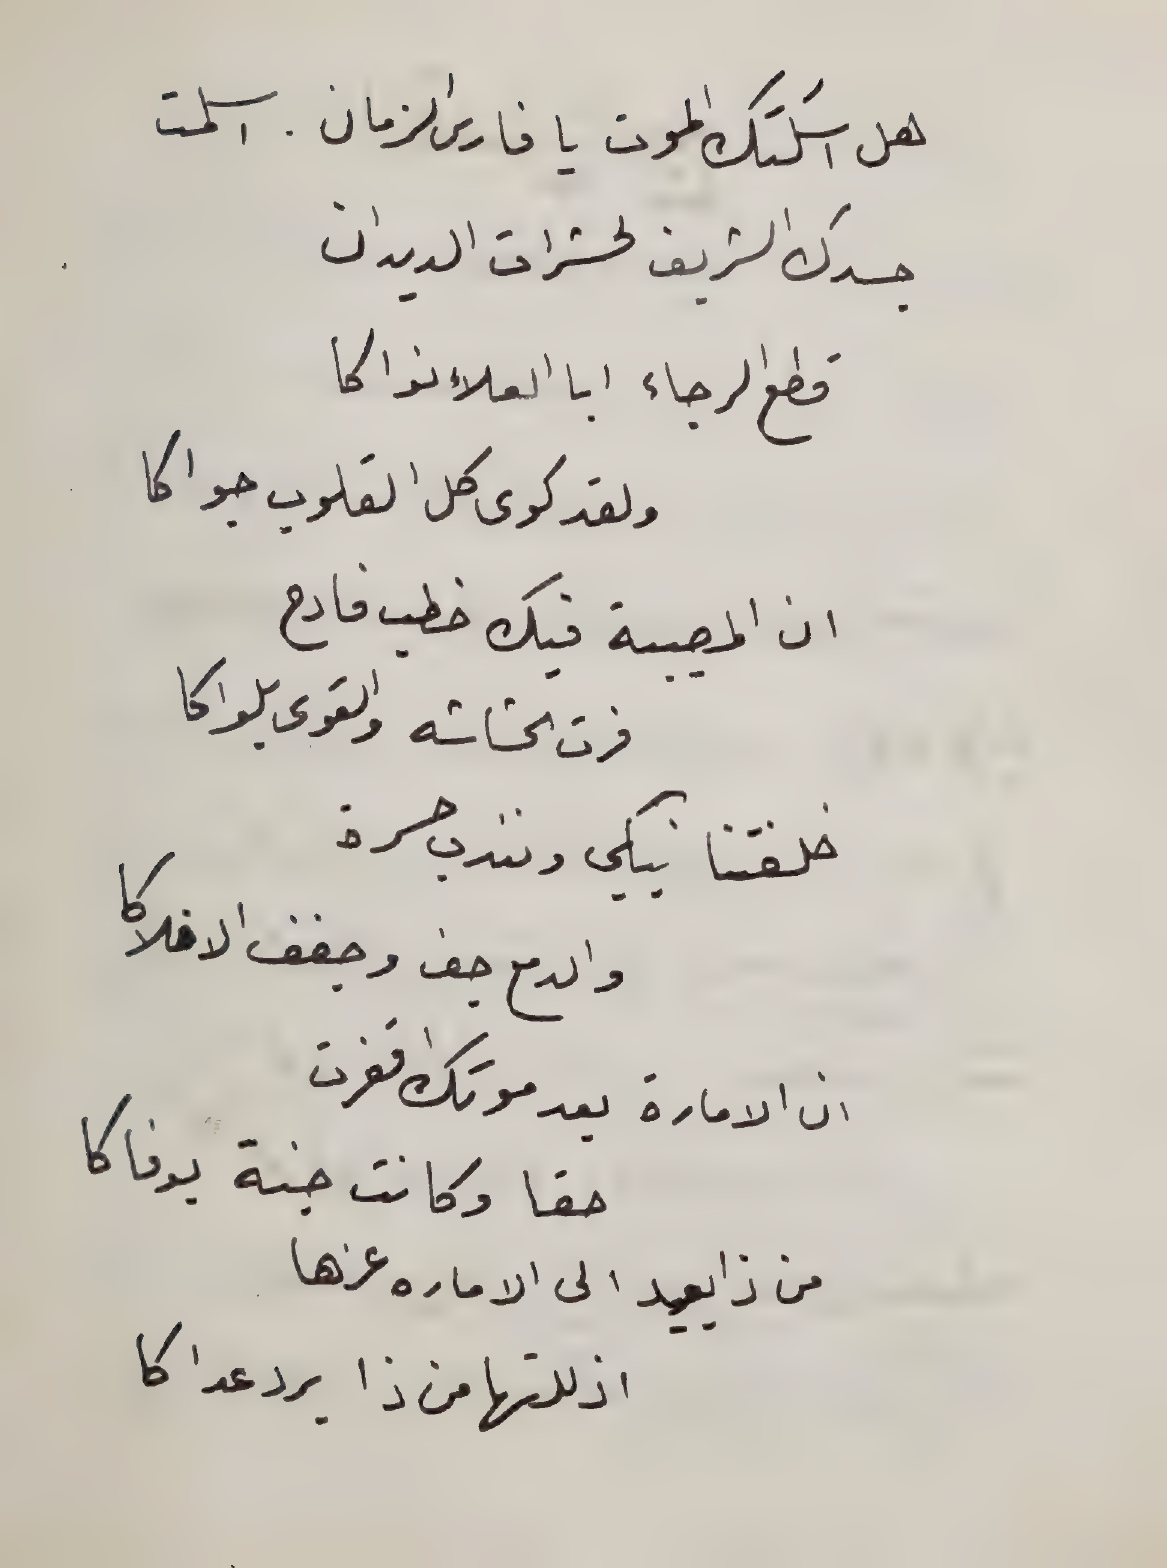 هل اسكتك الموت يا فارس الزمان . اسلمت
جسدك الشريف لحشرات الديدان
قطع الرجاء ابا العلاء نواكا
ولقد كوى كل القلوب جواكا
ان المصيبة فيك خطب فادح
فرت الحشاشه والقوى بلواكا
خلفتنا نبكي ونندب حسرة
والدمع جف وجفف الافلاكا
ان الامارة بعد موتك اقفرت
حقا وكانت جنة بوفاكا
من ذا يعيد الى الاماره عزها
اذللتها من ذا يرد عداكا